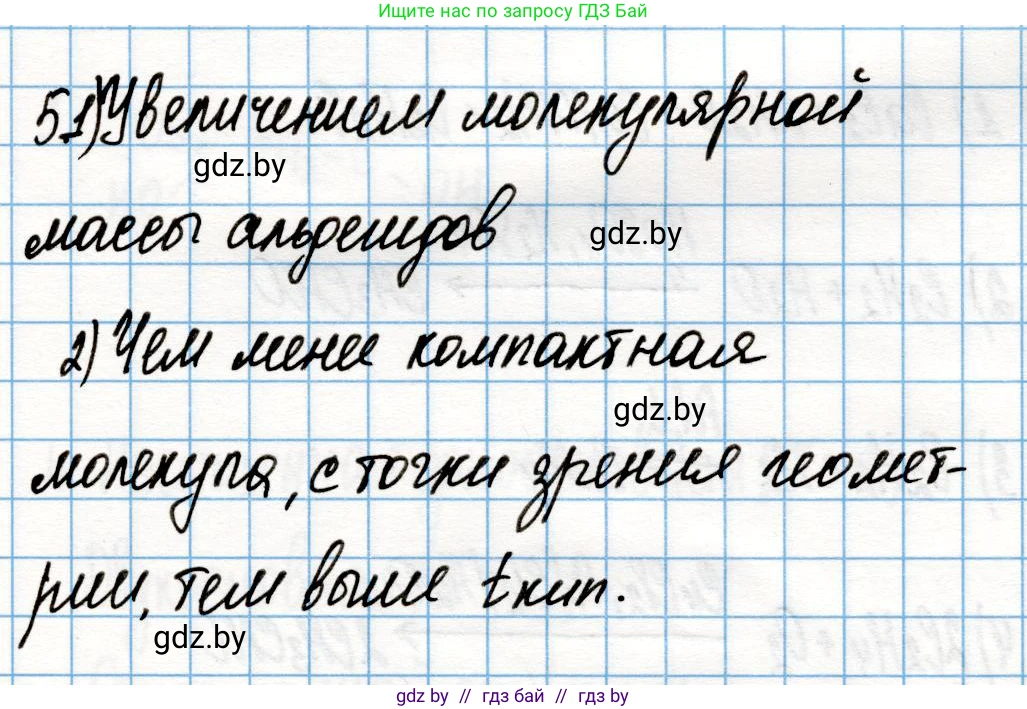 Ищите нас по запросу ГДЗ Бай
5.1) Увеличением молекулярной
gdz.by
массы альдегидов
gdz.by
2) Чем менее компактная
gdz.by
молекула, с точки зрения геомет-
рии, тем выше tкип.
gdz.by
gdz by // гдз бай // gdz by